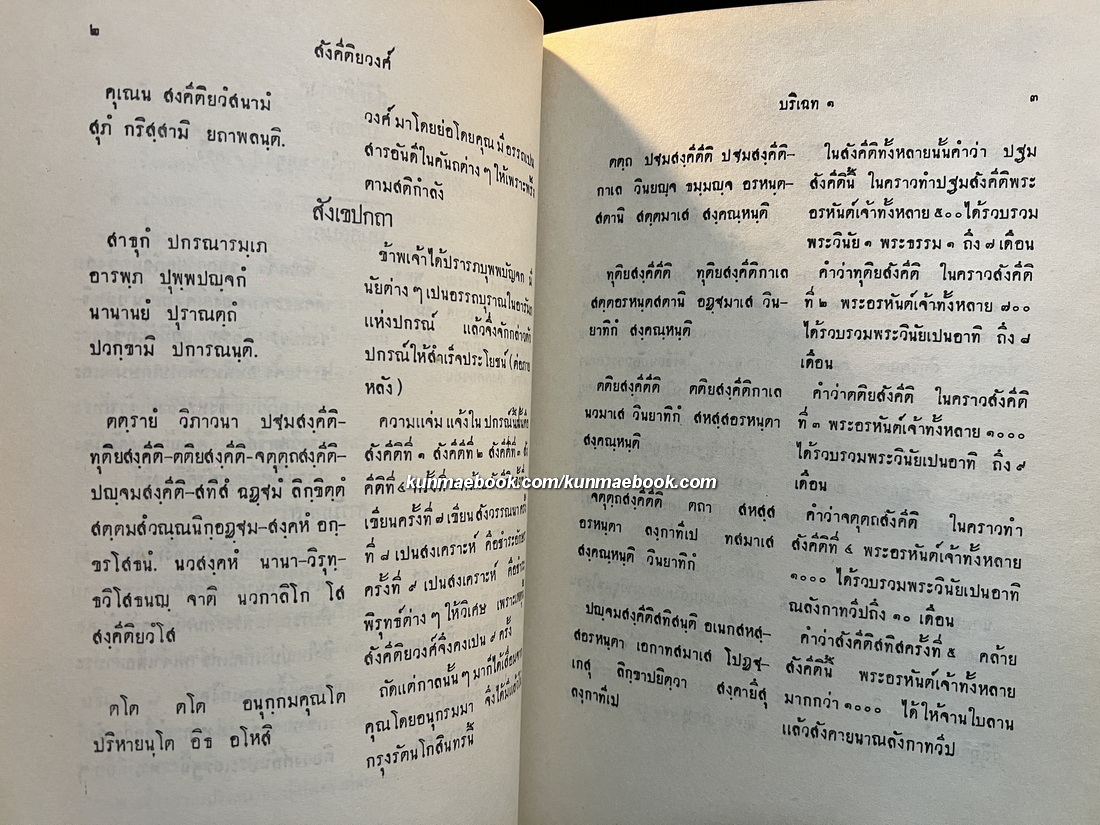 ๒
สังคีติยวงศ์
คุเณน สงฺคีติยวํสนามํ
สุภํ กริสฺสามิ ยถาพลนฺติ.
วงศ์ มาโดยย่อโดยคุณ มีอรรถเปน
สารอันดีในคันถต่าง ๆ ให้เพราะพริ้ง
ตามสติกำลัง
สังเขปกถา
สาธุกํ ปกรณารมฺเภ
อารพฺภ ปุพฺพปญฺจกํ
นานานยํ ปุราณตฺถํ
ปวกฺขามิ ปการณนฺติ.
ข้าพเจ้าได้ปรารภบุพพบัญจก มี
นัยต่าง ๆ เปนอรรถบุราณในอารัมภ
แห่งปกรณ์ แล้วจึ่งจักกล่าวตัว
ปกรณ์ให้สำเร็จประโยชน์ (ต่อภาย
หลัง)
ตตฺรายํ วิภาวนา ปฐมสงฺคีติ-
ทุติยสงฺคีติ-ตติยสงฺคีติ-จตุตฺถสงฺคีติ-
ปญฺจมสงฺคีติ-สทิสํ ฉฏฺฐมํ ลิกฺขิตฺตํ
สตฺตมสํวณฺณนิกฏฺฐม-สงฺคหํ อกฺ-
ขรโสธนํ. นวสงฺคหํ นานา-วิรุทฺ-
ธวิโสธนญฺ จาติ นวกาติโก โส
สงฺคีติยวํโส
ความแจ่ม แจ้งใน ปกรณ์นี้นั้นคือ
สังคีติที่ ๑ สังคีติที่ ๒ สังคีติที่ ๓ สัง
คีติที่ ๔
เขียนครั้งที่ ๗ เขียนสังวรรณนา ครั้ง
ที่ ๘ เปนสงเคราะห์ คือชำระอักษร
ครั้งที่ ๙ เปนสงเคราะห์ คือชำระ
พิรุทธ์ต่าง ๆ ให้วิเศษ เพราะเหตุนั้น
สังคีติยวงศ์จึ่งคงเปน ๙ ครั้ง
ตโต ตโต อนุกฺกมคุณโต
ปริหายนฺโต อิธ อโหสิ
ถัดแต่กาลนั้น ๆ มาก็ได้เสื่อมจาก
คุณโดยอนุกรมมา จึ่งได้มีแต่ใน
กรุงรัตนโกสินทรนี้
kunmaebook.com/kunmaebook.com
บริเฉท ๑
๓
ตตฺถ ปฐมสงฺคีติ ปฐมสงฺคีติ-
กาเล วินยญฺจ ธมฺมญฺจ อรหนฺต-
สตานิ สตฺตมาเส สงฺคณฺหนฺติ
ในสังคีติทั้งหลายนั้นคำว่า ปฐม
สังคีตินี้ ในคราวทำปฐมสังคีติพระ
อรหันต์เจ้าทั้งหลาย ๕๐๐ ได้รวบรวม
พระวินัย ๑ พระธรรม ๑ ถึง ๗ เดือน
ทุติยสงฺคีติ ทุติยสงฺคีติกาเล
สตฺตอรหนฺตสตานิ อฏฺฐมาเส วิน-
ยาทิกํ สงฺคณฺหนฺติ
คำว่าทุติยสังคีติ ในคราวสังคีติ
ที่ ๒ พระอรหันต์เจ้าทั้งหลาย ๗๐๐
ได้รวบรวมพระวินัยเปนอาทิ ถึง ๘
เดือน
ตติยสงฺคีติ ตติยสงฺคีติกาเล
นวมาเส วินยาทิกํ สหสฺสอรหนฺตา
สงฺคณฺหนฺติ
คำว่าตติยสังคีติ ในคราวสังคีติ
ที่ ๓ พระอรหันต์เจ้าทั้งหลาย ๑๐๐๐
ได้รวบรวมพระวินัยเปนอาทิ ถึง ๙
เดือน
จตุตฺถสงฺคีติ ตถา สหสฺส
อรหนฺตา ลงฺกาทีเป ทสมาเส
สงฺคณฺหนฺติ วินยาทิกํ
คำว่าจตุตถสังคีติ ในคราวทำ
สังคีติที่ ๔ พระอรหันต์เจ้าทั้งหลาย
๑๐๐๐ ได้รวบรวมพระวินัยเปนอาทิ
ณลังกาทวีปถึง ๑๐ เดือน
ปญฺจมสงฺคีติสทิสนฺติ อเนกสหสฺ-
สอรหนฺตา เอกาทสมาเส โปฏฺฐ-
เกสุ ลิกฺขาปยิตฺวา สงฺคายึสุ
ลงฺกาทีเป
คำว่าสังคีติสทิสครั้งที่ ๕ คล้าย
สังคีตินี้ พระอรหันต์เจ้าทั้งหลาย
มากกว่า ๑๐๐๐ ได้ให้จานใบลาน
แล้วสังคายนาณลังกาทวีป